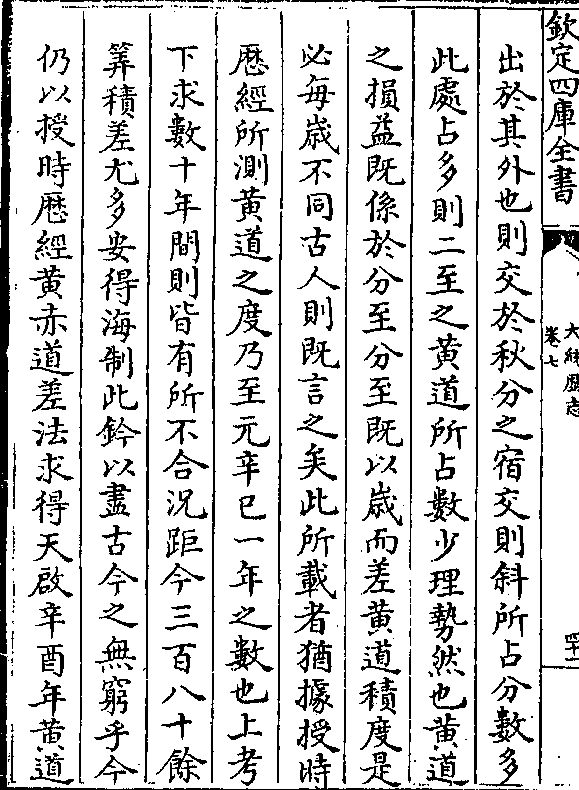 欽定四庫全書
大統歷志
卷七
四十一
出於其外也則交於秋分之宿交則斜所占分數多
此處占多則二至之黃道所占數少理勢然也黃道
之損益既係於分至分至既以歲而差黃道積度是
必每歲不同古人則既言之矣此所載者猶據授時
歴經所測黃道之度乃至元辛巳一年之數也上考
下求數十年間則皆有所不合況距今三百八十餘
筭積差尤多安得海制此鈐以盡古今之無窮乎今
仍以授時歴經黃赤道差法求得天啟辛酉年黃道